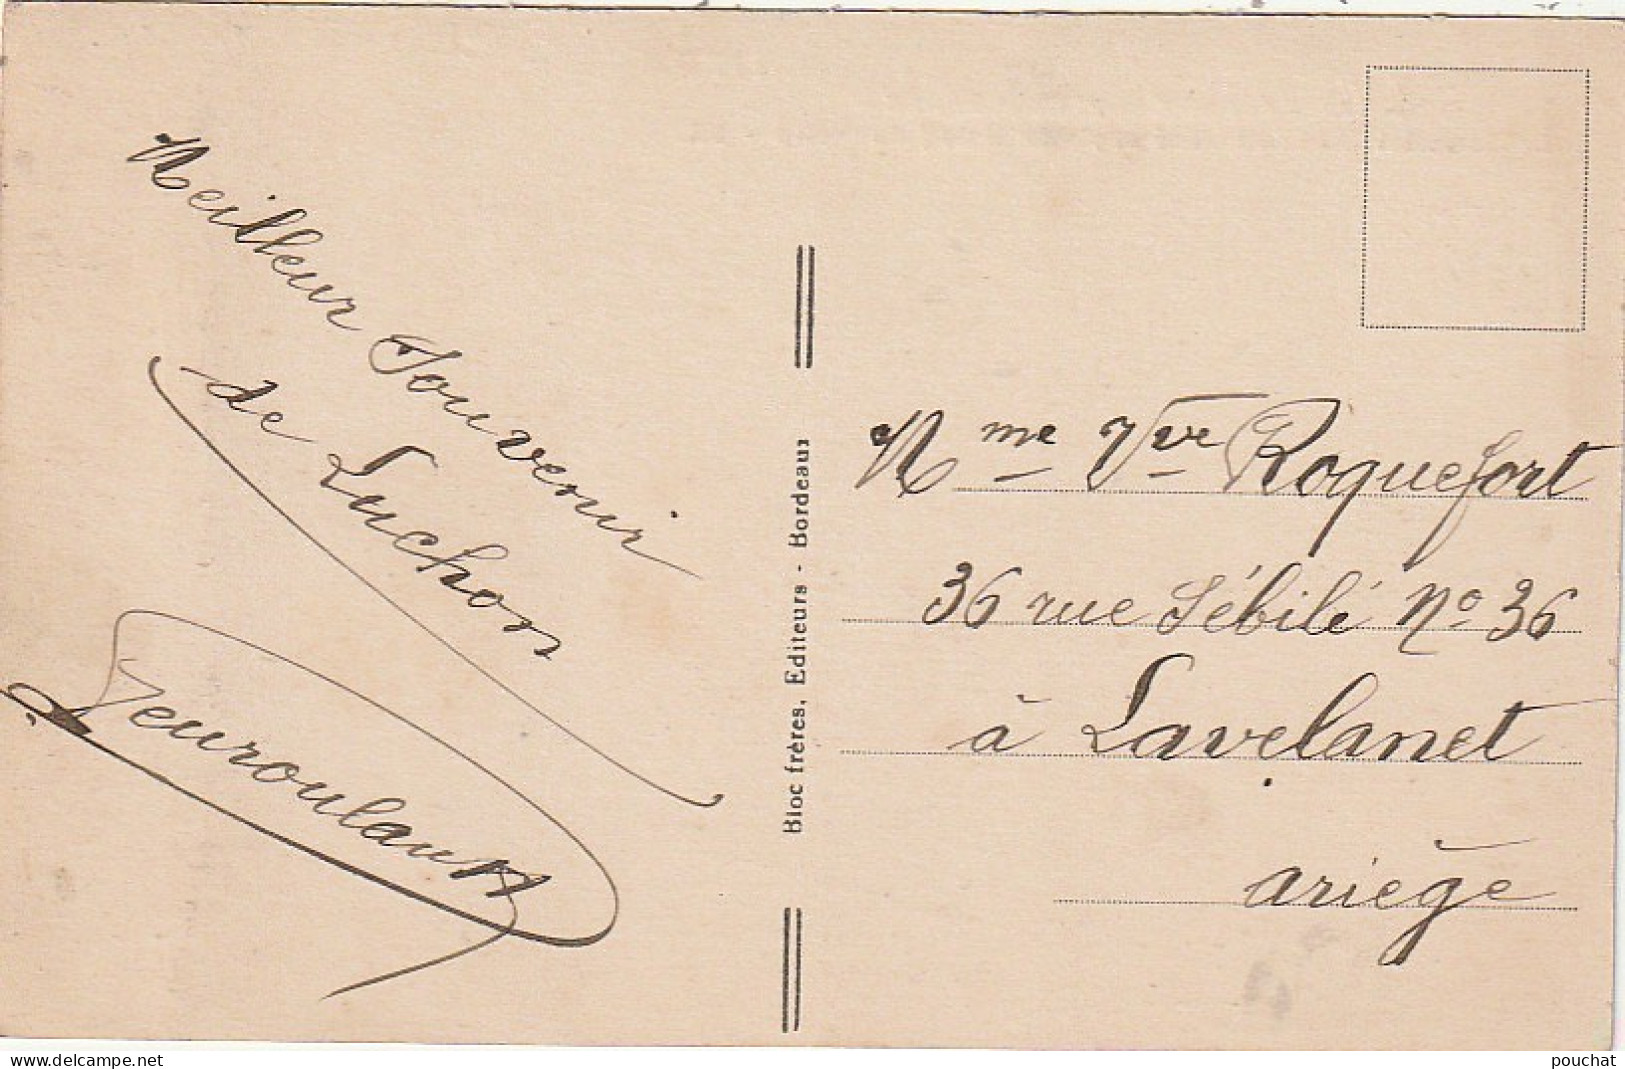 Meilleur Souvenir
de Luchon
Bloc frères, Editeurs - Bordeaux
Mme Vve Roquefort
36 rue Sébilé No 36
à Lavelanet
ariège
www.delcampe.net
pouchat